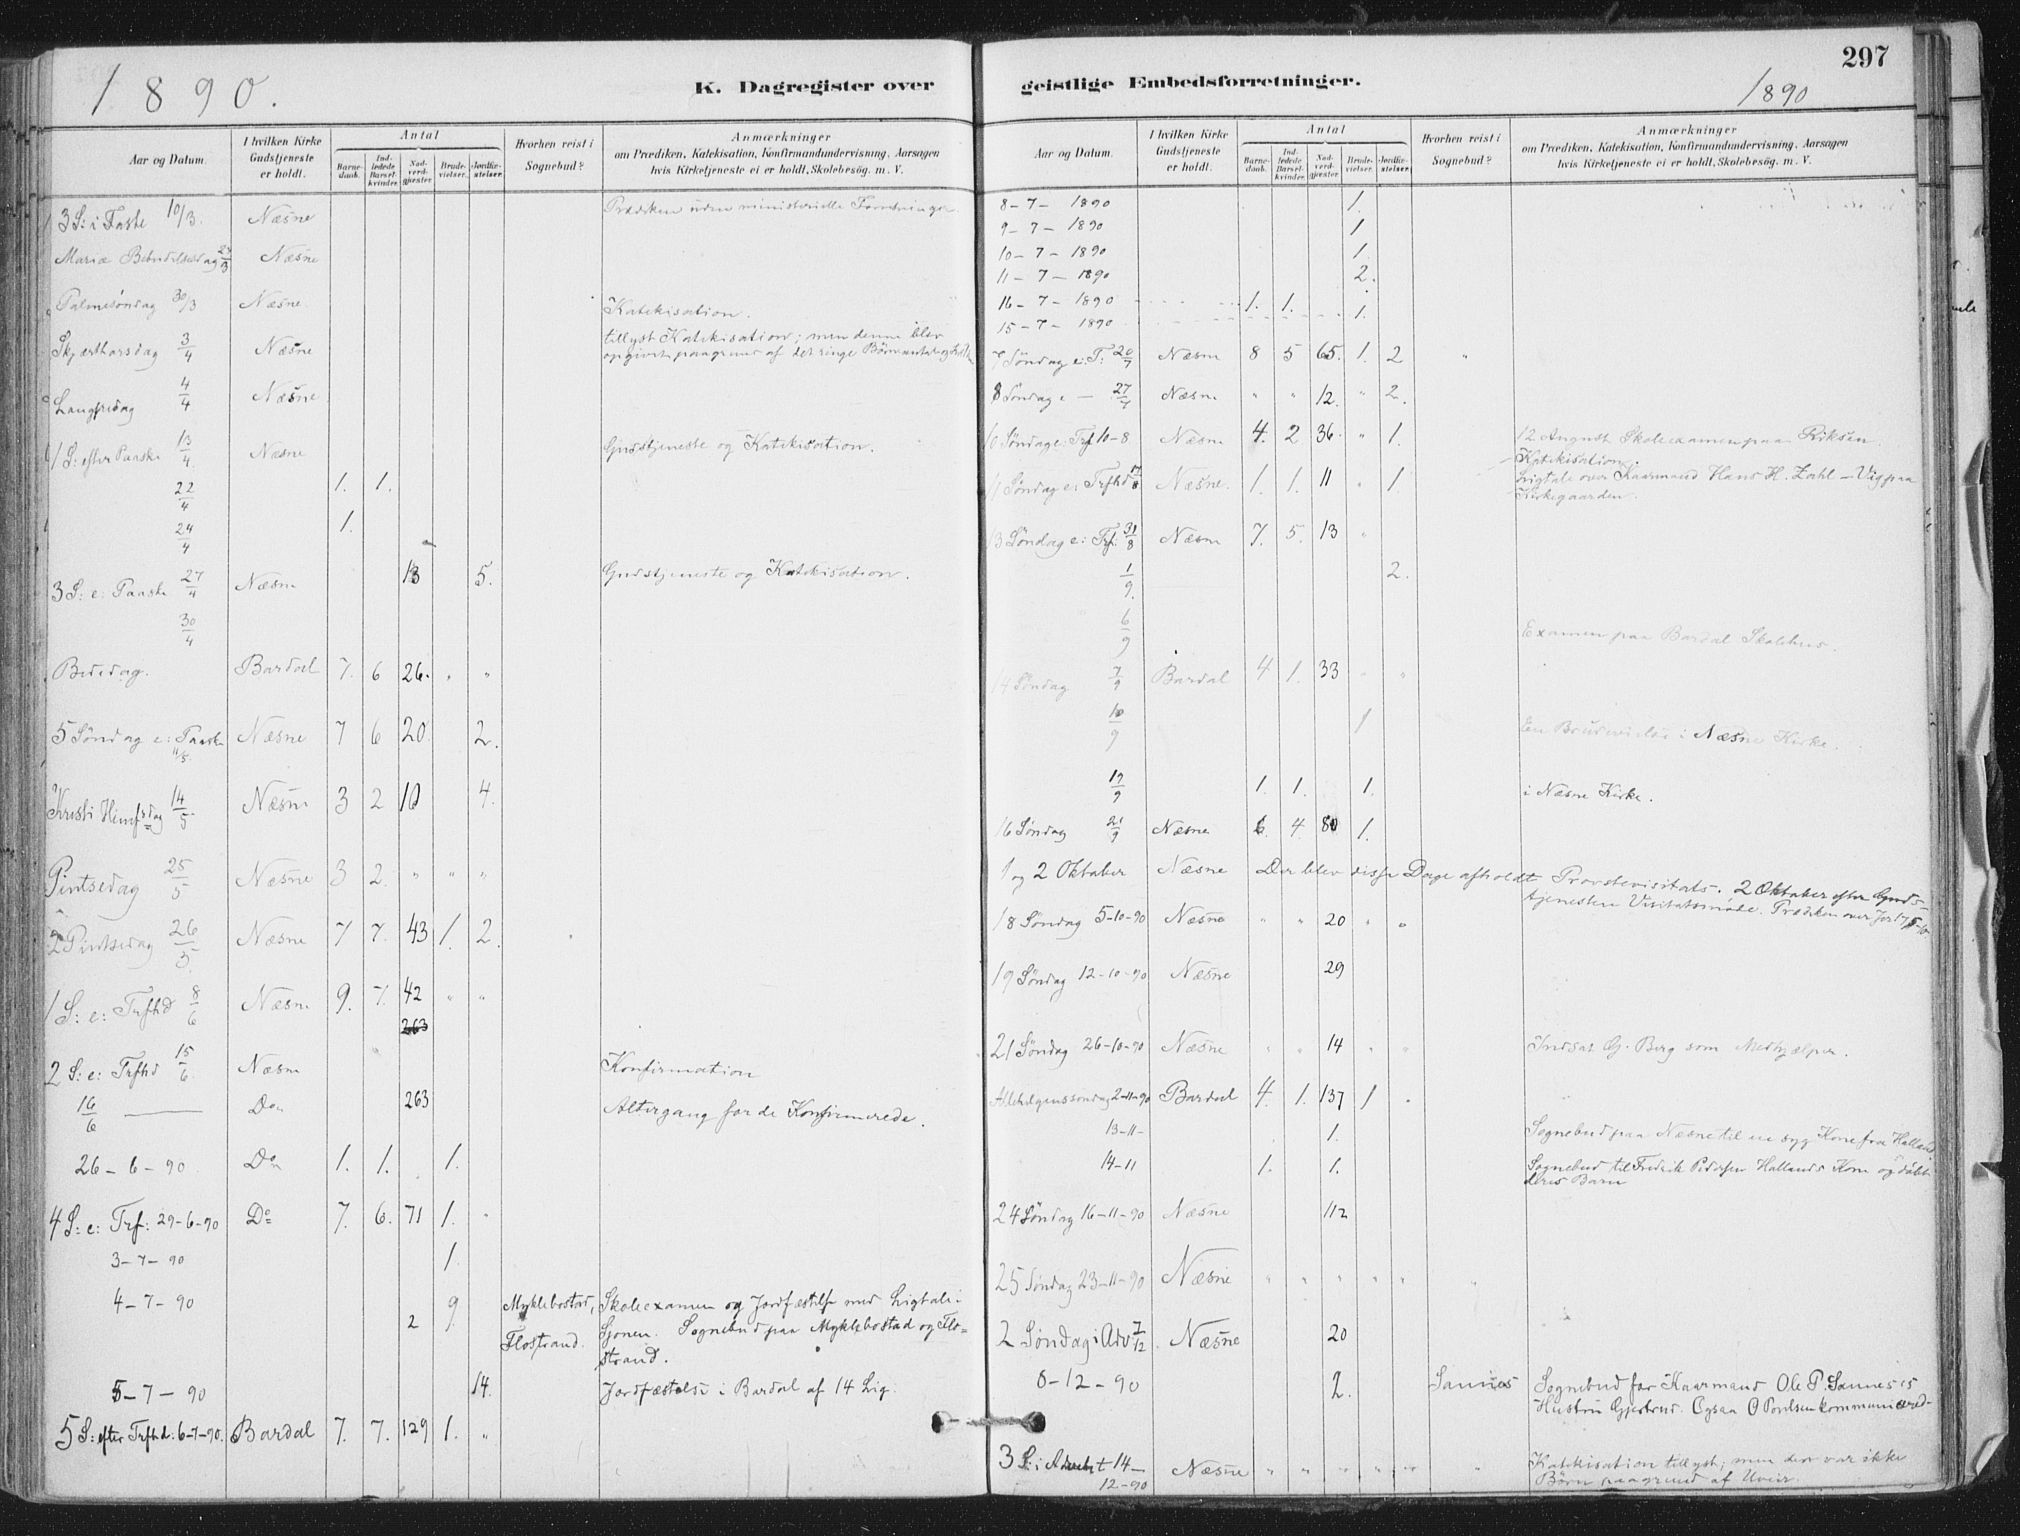 1890.
K. Dagregister over
Aar og Datum.
I hvilken Kirke Gudstjeneste er holdt.
Antal
Barnedaab.
Indledede Barselkvinder.
Nadverdgjester.
Brudevielser.
Jordfæstelser.
Hvorhen reist i Sognebud?
Anmærkninger
om Prædiken, Katekisation, Konfirmandundervisning, Aarsagen
hvis Kirketjeneste ei er holdt, Skolebesøg. m. V.
3 S: i Faste 10/3. Næsne Prædiken uden ministerielle Forretninger.
Mariæ Bebudelsesdag 23/3 Næsne
Palmesöndag 30/3 Næsne. Katekisation.
Skjærthorsdag 3/4 Næsne tillyst Katekisation; men denne blev
opgivet paagrund af det ringe Börneantal
Langfredag 4/4 Næsne
1 S: efter Paaske 13/4. Næsne Gudstjeneste og Katekisation.
22/4 1. 1.
24/4 1.
3 S: e: Paaske 27/4 Næsne 13 5. Gudstjeneste og Katekisation.
30/4
Bededag. Bardal 7. 6 26. " "
5 Söndag e: Paaske 11/5. Næsne 7 6 20 2.
Kristi Himfsdag 14/5 Næsne 3 2 10 4.
Pintsedag 25/5 Næsne 3 2. " " "
2 Pintsedag 26/5. Næsne 7 7. 43 1. 2.
1 S: e: Trfhd 8/6 Næsne 9. 7. 42 " "
263
2 S: e: Trfhd 15/6. Næsne Konfirmation
16/6 — Do 263 Altergang for de Konfirmerede.
26-6-90. Do 1. 1. 1.
4 S: e: Trf: 29-6-90 Do 7. 6. 71 1. "
3-7-90 1.
4-7-90 2 9. Myklebostad, Skoleexamen og Jordfæstelse med Ligtale i
Flostrand. Sjonen. Sognebud paa Myklebostad og Flo=
strand.
5-7-90 14. Jordfæstelse i Bardal af 14 Lig.
5 S: efter Trfhd: 6-7-90. Bardal 7. 7. 129 1. "
297
geistlige Embedsforretninger.
1890
Aar og Datum.
I hvilken Kirke Gudstjeneste er holdt.
Antal
Barnedaab.
Indledede Barselkvinder.
Nadverdgjester.
Brudevielser.
Jordfæstelser.
Hvorhen reist i Sognebud?
Anmærkninger
om Prædiken, Katekisation, Konfirmandundervisning, Aarsagen
hvis Kirketjeneste ei er holdt, Skolebesøg. m. V.
8-7-1890 1.
9-7-1890 1
10-7-1890 1.
11-7-1890 2.
16-7-1890 1. 1.
15-7-1890 1.
7 Söndag e: T: 20/7 Næsne 8 5 65. 1. 2 "
8 Söndag e — 27/7 Næsne " " 12. " 2.
10 Söndag e: Trf 10-8 Næsne 4. 2 36. " 1. 12 August Skoleexamen paa Riksen.
Katekisation.
11 Söndag e: Trfhd 17/8 Næsne. 1. 1. 11 " 1. Ligtale over Kaarmand Hans H. Zahl - Vig paa
Kirkegaarden.
13 Söndag e: Trf: 31/8 Næsne 7. 5. 13 "
1/9. 2.
6/9 Examen paa Bardal Skolehus.
14 Söndag 7/9 Bardal 4 1. 33 " "
10/9 1 En Brudevielse i Næsne Kirke.
19/9 1. 1. 1. i Næsne Kirke.
16 Söndag 21/9 Næsne 6. 4. 80 1.
1 og 2 Oktober Næsne Der blev disse Dage afholdt Provstevisitats. 2 Oktober efter Guds-
tjenesten Visitatsmöde. Prædiken over Jer 17, 5-10
18 Söndag 5-10-90 Næsne " " 20 " "
19 Söndag 12-10-90 Næsne 29
21 Söndag 26-10-90 Næsne " " 14 " " Indsat G. Berg som Medhjælper.
Allehelgenssondag 2-11-90 Bardal 4. 1. 137 1 "
13-11- 1. Sognebud paa Næsne til en syg Kone fra Halland.
14-11 1. 1. Sognebud til Fredrik Pedersen Hallands Kone og döbt
deres Barn
24 Söndag 16-11-90 Næsne 112
25 Söndag 23-11-90 Næsne " " " " " "
2 Söndag i Adv 7/12. Næsne 20
8-12-90 2. Sannes Sognebud for Kaarmand Ole P. Sannes's
Hustru Gjertrud. Ogsaa O Poulsen kommunicered-
3 S: i Advent 14-12-90 Næsne " " " " " " Katekisation tillyst; men der var ikke
Börn paagrund af Uveir.